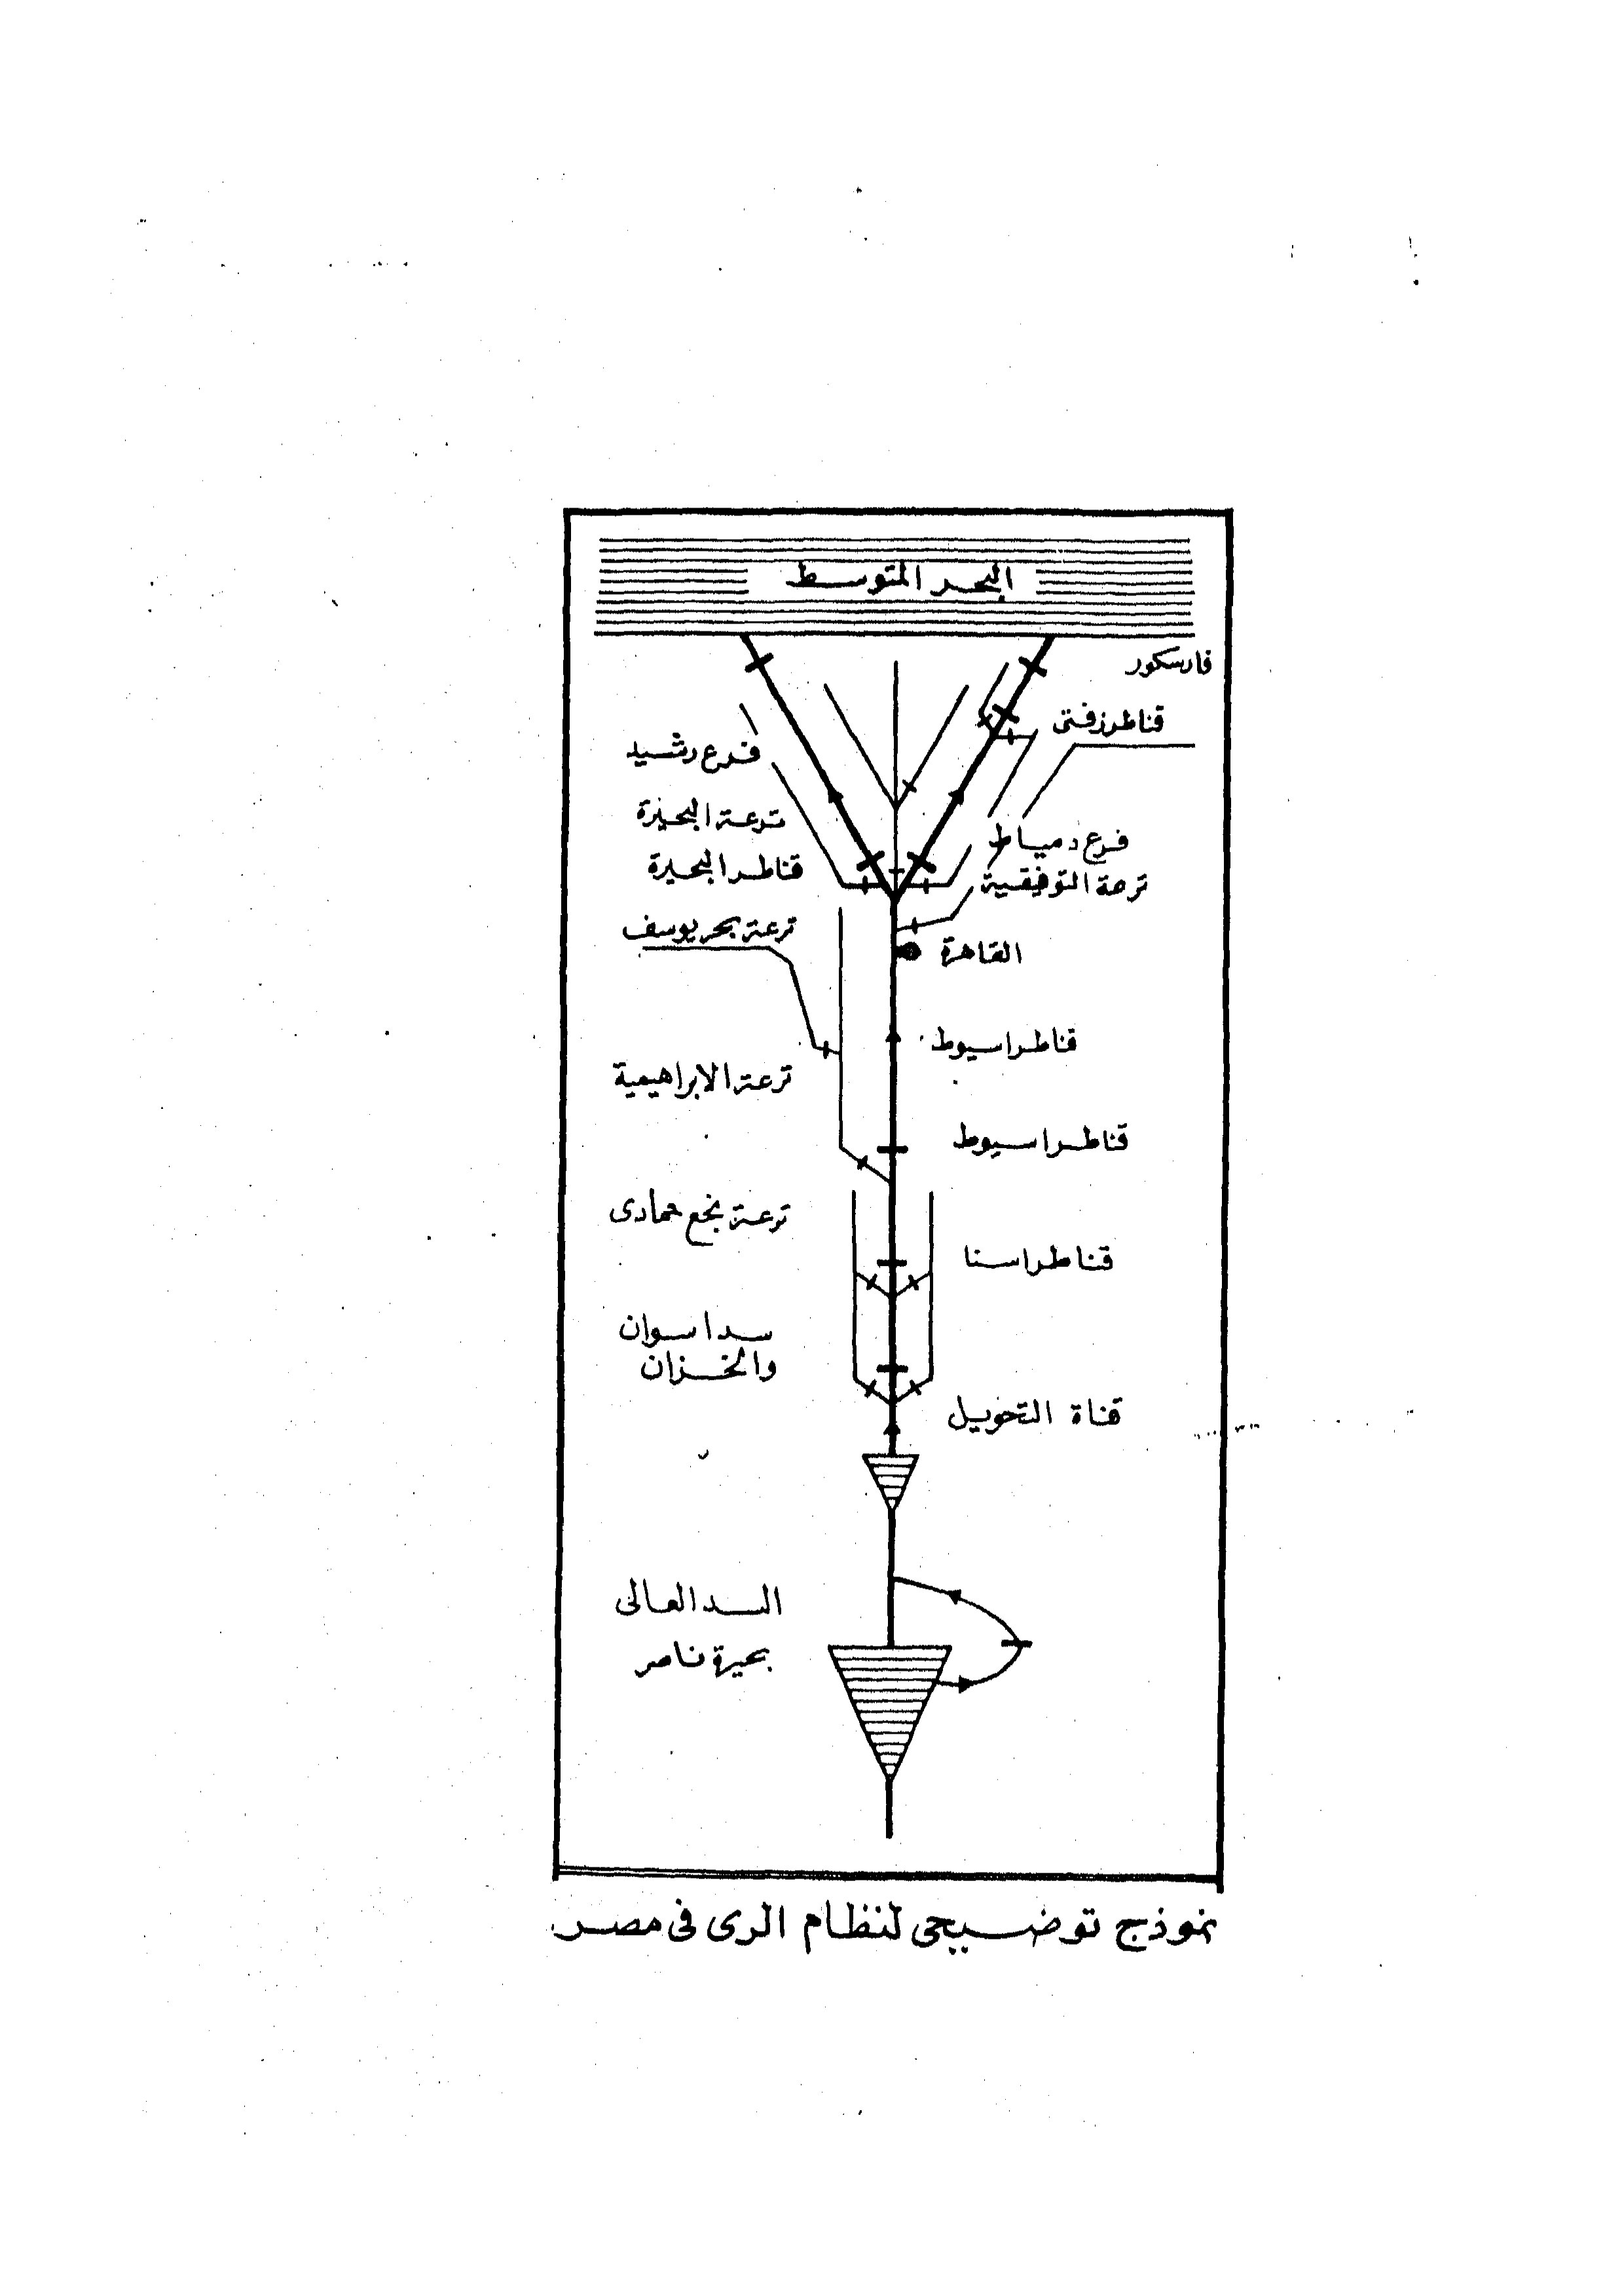 البحر المتوسط
فارسكور
قناطر زفتى
فرع رشيد
ترعة البحيرة
فرع دمياط
قناطر البحيرة
ترعة التوفيقية
ترعة بحر يوسف
القاهرة
قناطر اسيوط
ترعة الابراهيمية
قناطر اسيوط
ترعة نجع حمادى
قناطر اسنا
سد اسوان
والخزان
قناة التحويل
السد العالى
بحيرة ناصر
نموذج توضيحى لنظام الرى فى مصر